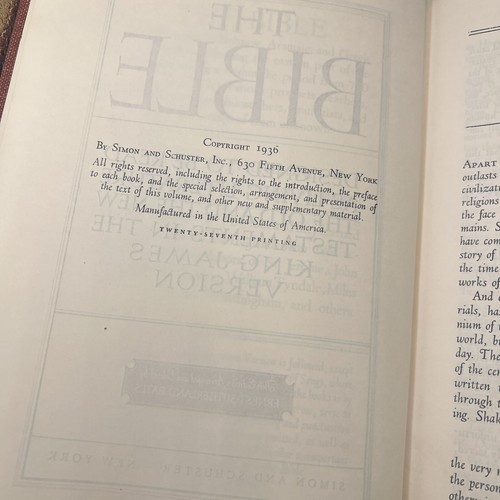 Copyright 1936
By Simon and Schuster, Inc., 630 Fifth Avenue, New York
All rights reserved, including the rights to the introduction, the preface
to each book, and the special selection, arrangement, and presentation of
the text of this volume, and other new and supplementary material.
Manufactured in the United States of America.
TWENTY-SEVENTH PRINTING
THE
BIBLE
TESTAMENTS IN THE
KING JAMES
VERSION
SIMON AND SCHUSTER · NEW YORK
Apart
outlasts
civilizat
religions
the face
mains. S
have com
story of
the time
works of
And
rials, ha
nium of
world, b
day. The
of the cen
written
through t
ing. Shak
the very n
the person